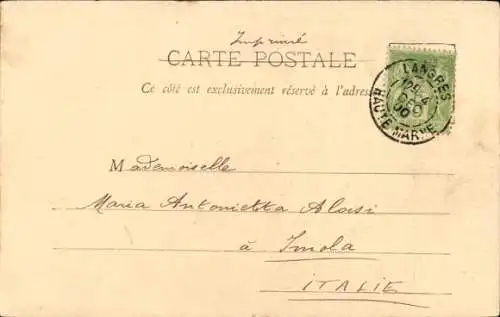 Imprimé
CARTE POSTALE
Ce côté est exclusivement réservé à l'adresse
LANGRES
HAUTE MARNE
Mademoiselle
Maria Antonietta Aloisi
à Imola
ITALIE